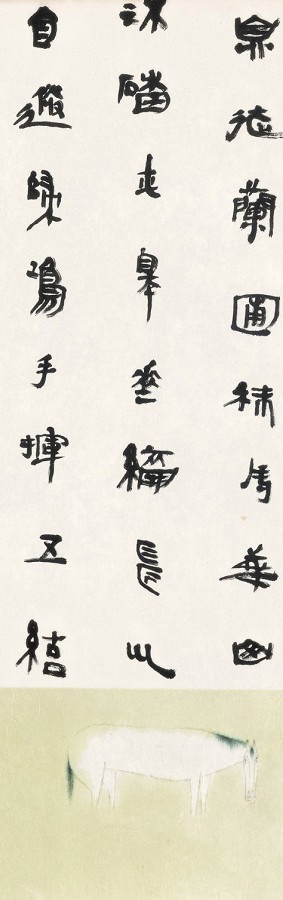 息徒蘭圃秣馬華山
流磻平皋垂綸長川
目送歸鴻手揮五絃